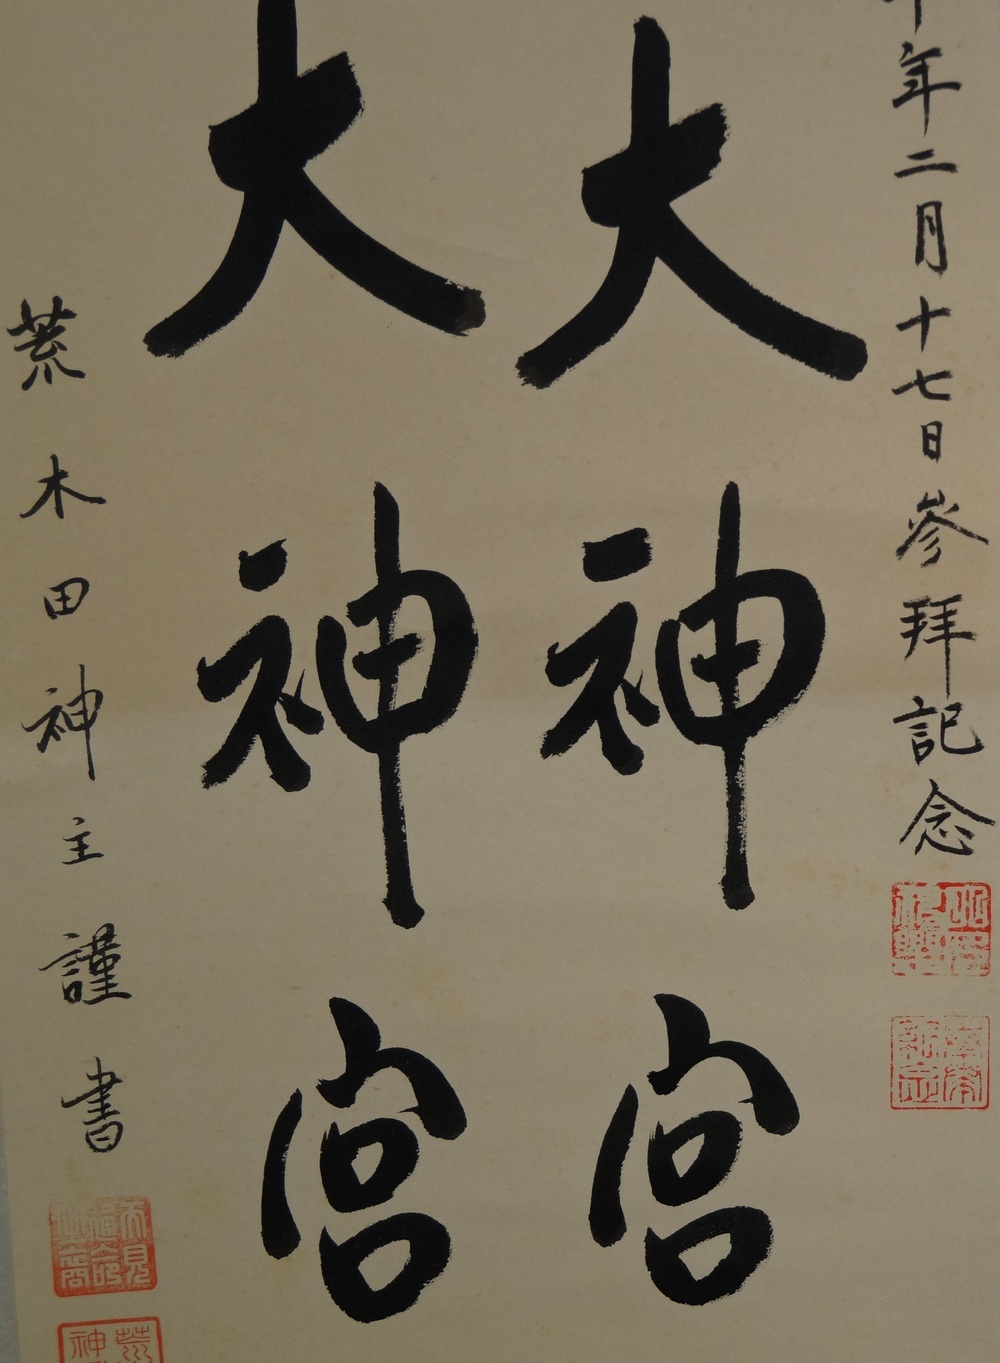 年二月十七日参拜記念
大神宮
大神宮
荒木田神主謹書